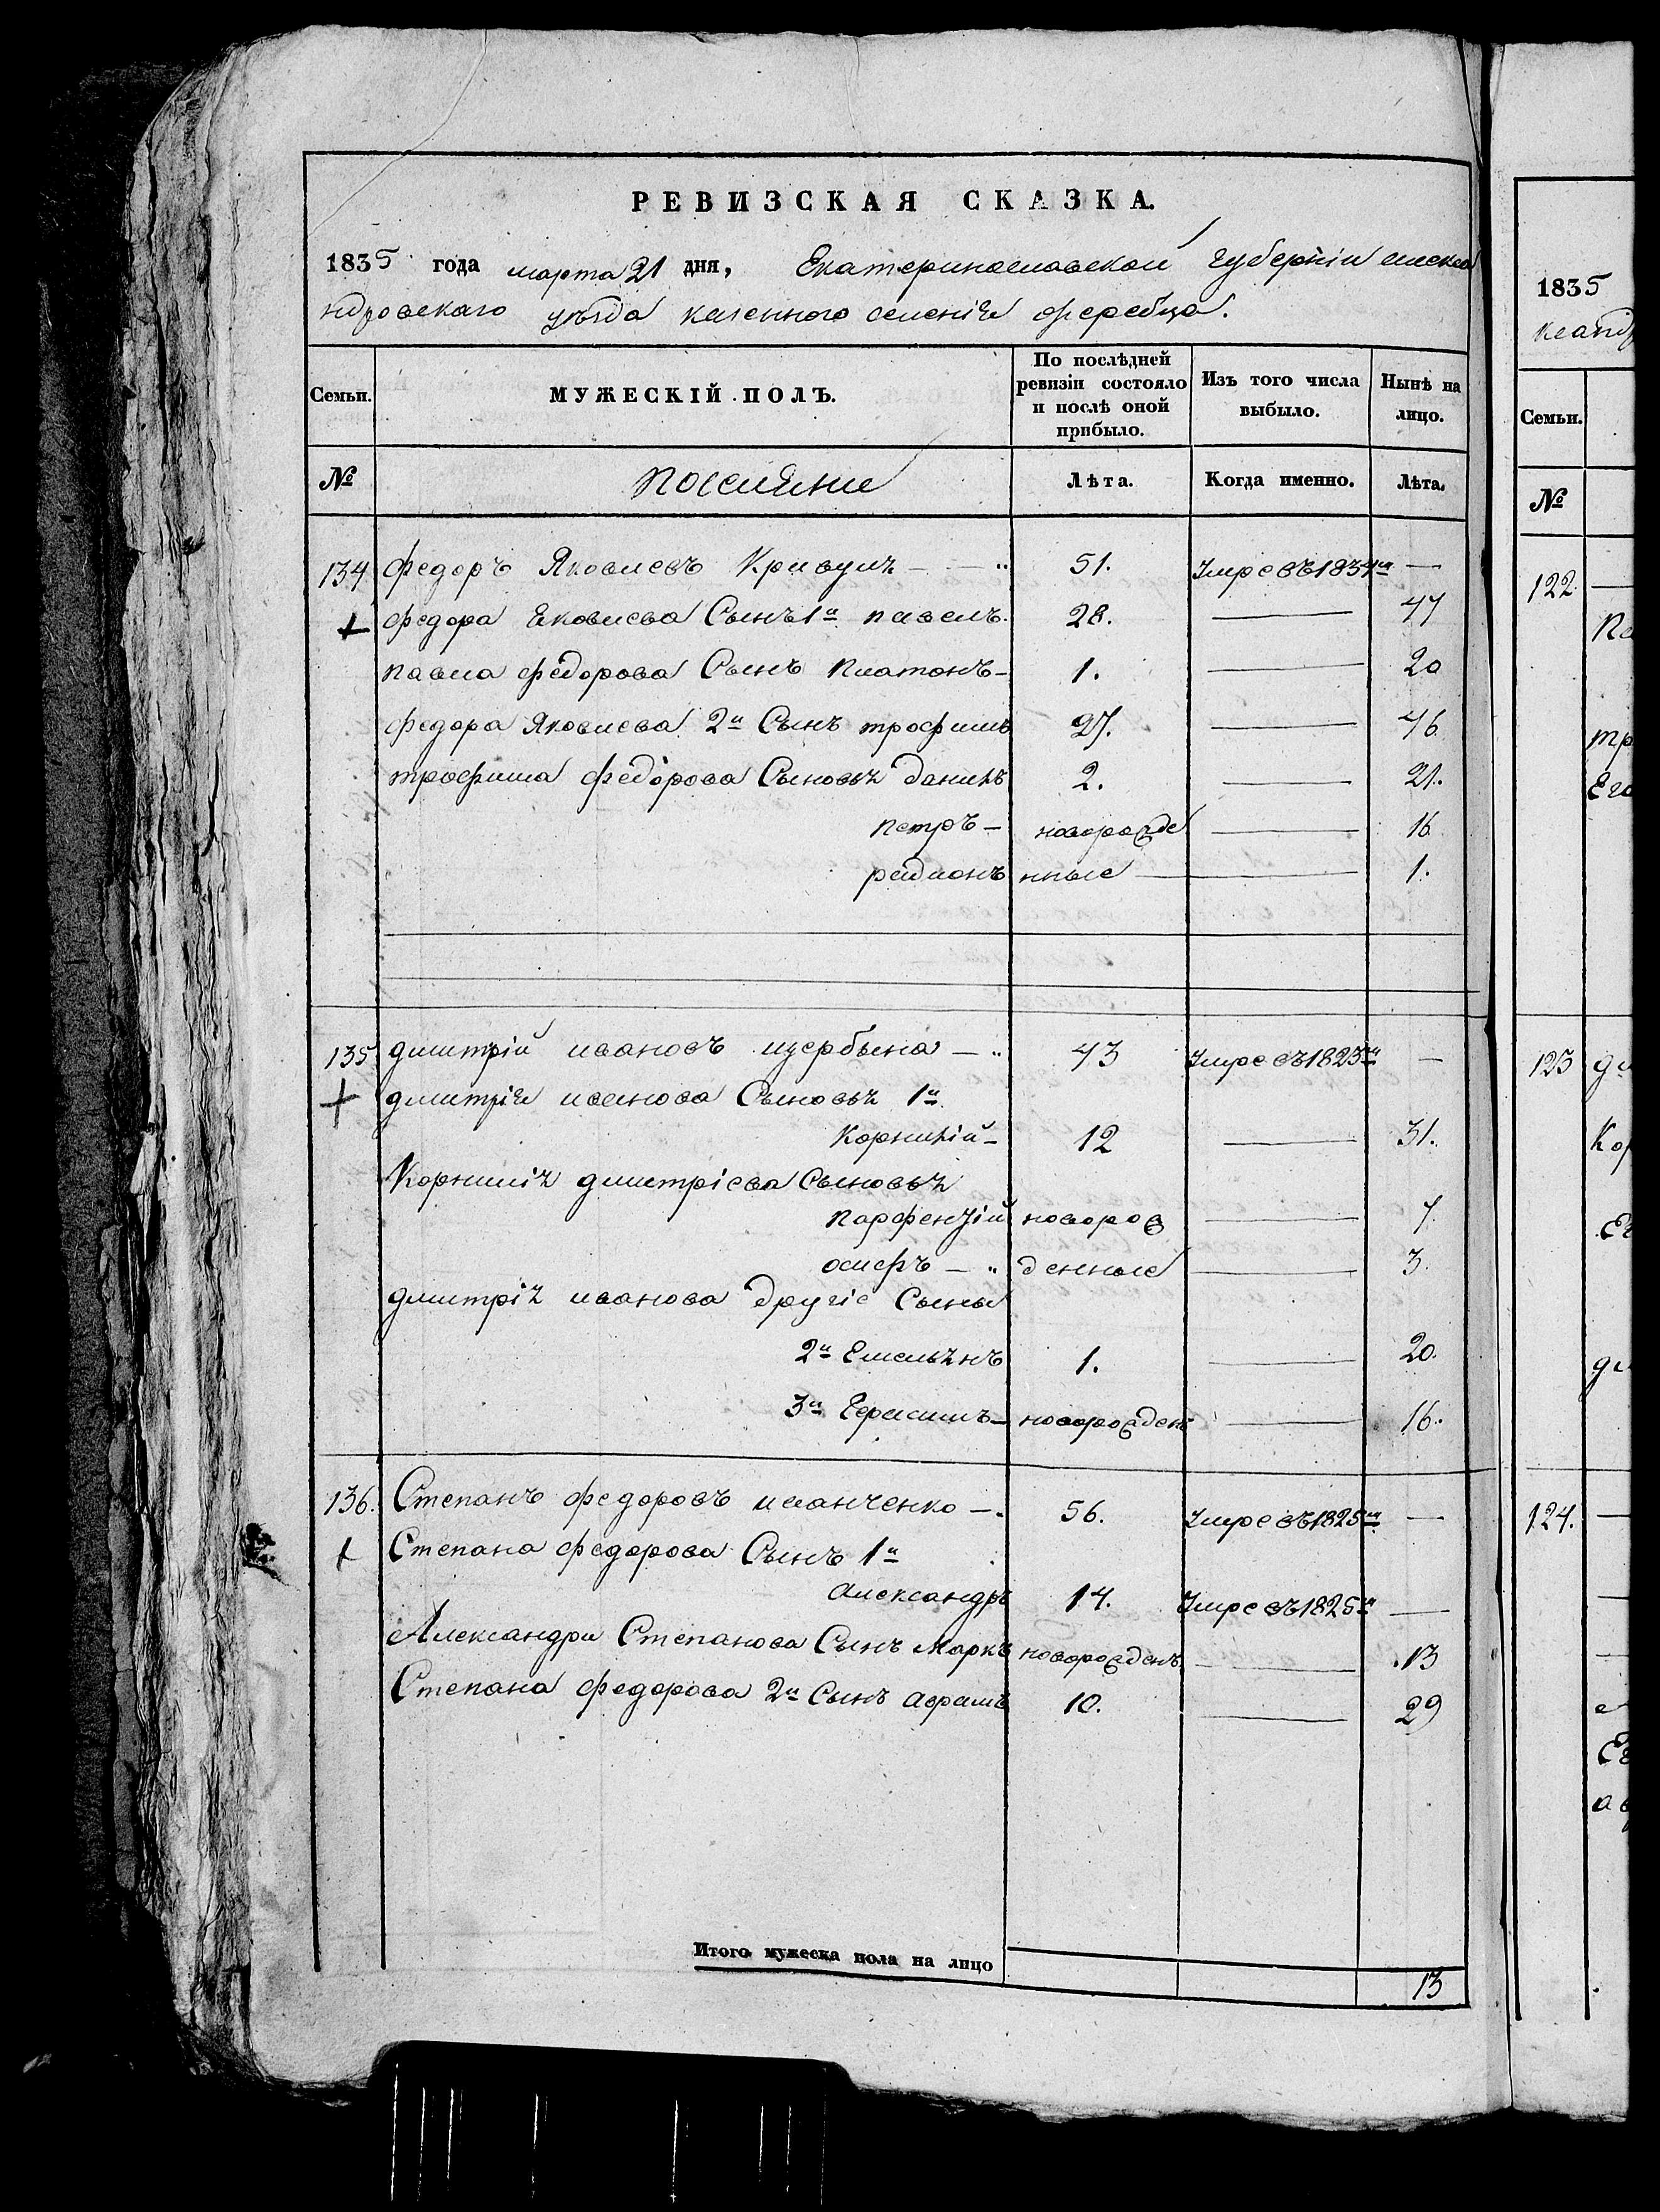 РЕВИЗСКАЯ СКАЗКА.
1835 года марта 21 дня, Екатеринославской губерніи алекса
ндровскаго уѣзда казенного селенія жеребца.
Семьи. МУЖЕСКІЙ ПОЛЪ. По послѣдней ревизіи состояло и послѣ оной прибыло. Изъ того числа выбыло. Нынѣ на лицо.
№ поселяне Лѣта. Когда именно. Лѣта.
134 федоръ Яковлевъ Кривуля 51. Умре въ 1834м —
федора Яковлева Сынъ 1й павелъ. 28. — 47
павла федорова Сынъ платонъ 1. — 20
федора Яковлева 2й Сынъ трофимъ 27. — 46
трофима федорова Сыновья данилъ 2. — 21.
петръ — новорожде — 16
родионъ нные — 1.
135 дмитрій ивановъ щербына 43 Умре въ 1823м —
дмитрія иванова Сыновья 1й
Корнилій 12 — 31.
Корнилія дмитріева Сыновья
парфентій новорож — 7
осифъ — денные — 3.
дмитрія иванова другіе Сыны
2й Емельянъ 1. — 20.
3й Герасимъ новорожденъ — 16.
136. Степанъ федоровъ 56. Умре въ 1825м —
Степана федорова Сынъ 1й
александръ 14. Умре въ 1825м —
Александра Степанова Сынъ Маркъ новорожденъ — 13
Степана федорова 2й Сынъ аврамъ 10. — 29
Итого мужеска пола на лицо 13
1835
Семьи.
№
122
123
124.